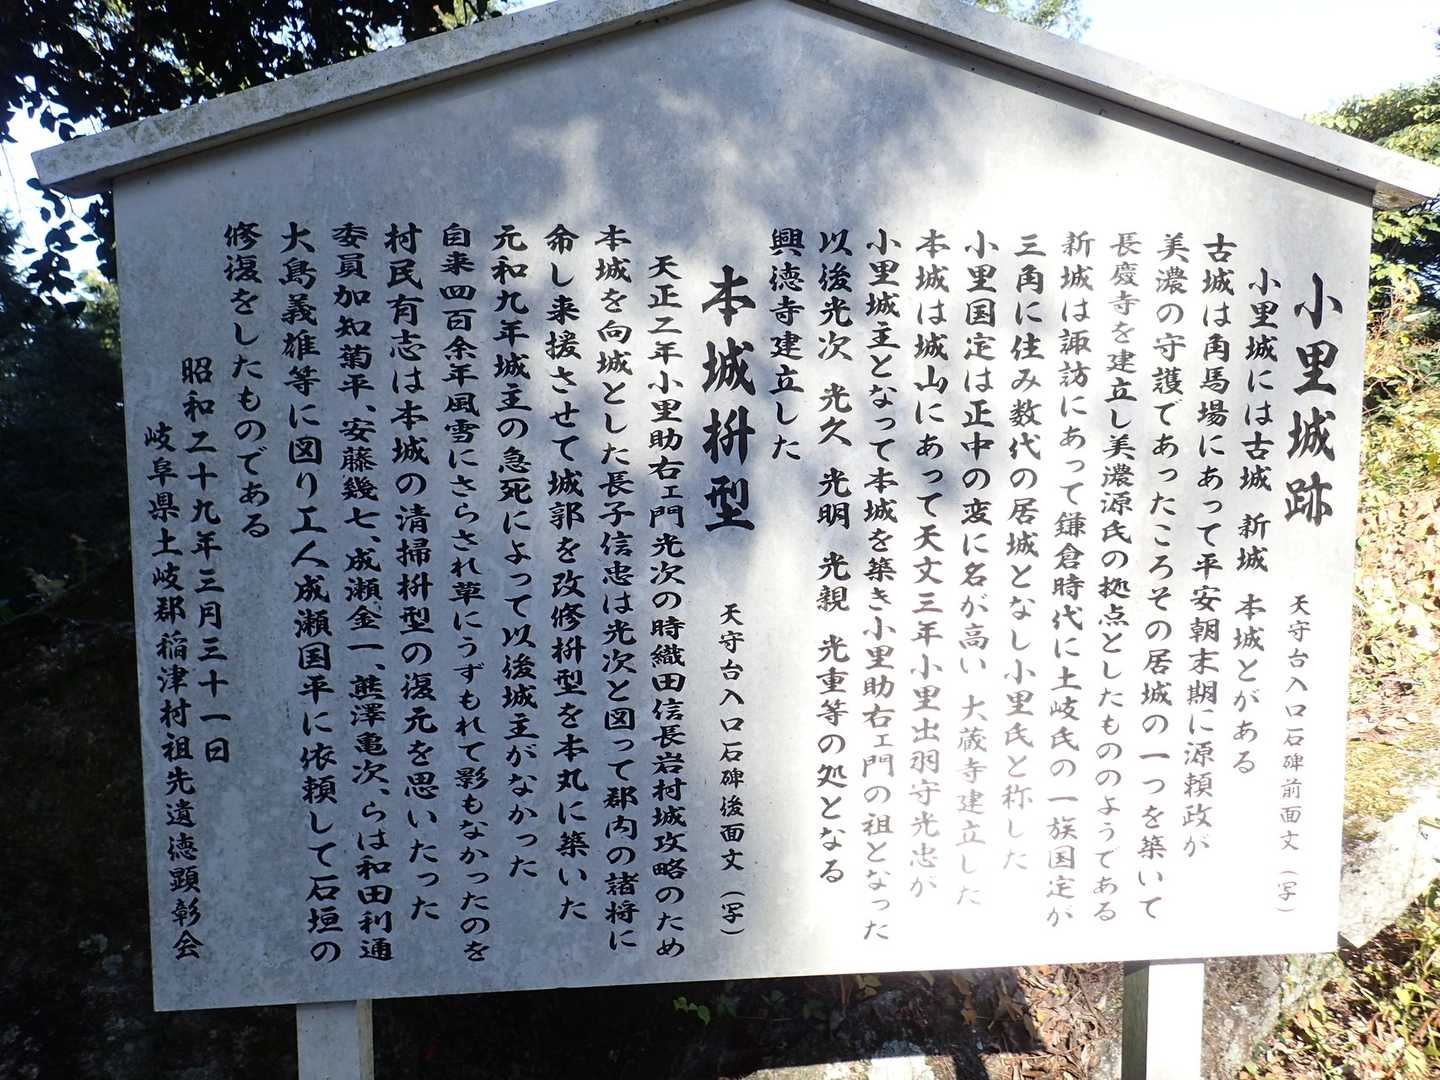 小里城跡 天守台入口石碑前面文(写)
小里城には古城 新城 本城とがある
古城は角馬場にあって平安朝末期に源頼政が
美濃の守護であったころその居城の一つを築いて
長慶寺を建立し美濃源氏の拠点としたもののようである
新城は諏訪にあって鎌倉時代に土岐氏の一族国定が
三角に住み数代の居城となし小里氏と称した
小里国定は正中の変に名が高い 大蔵寺建立した
本城は城山にあって天文三年小里出羽守光忠が
小里城主となって本城を築き小里助右ェ門の祖となった
以後光次 光久 光明 光親 光重等の処となる
興徳寺建立した
本城枡型 天守台入口石碑後面文(写)
天正二年小里助右ェ門光次の時織田信長岩村城攻略のため
本城を向城とした長子信忠は光次と図って郡内の諸将に
命し来援させて城郭を改修枡型を本丸に築いた
元和九年城主の急死によって以後城主がなかった
自来四百余年風雪にさらされ草にうずもれて影もなかったのを
村民有志は本城の清掃枡型の復元を思いたった
委員加知菊平、安藤幾七、成瀬金一、熊澤亀次、らは和田利通
大島義雄等に図り工人成瀬国平に依頼して石垣の
修復をしたものである
昭和二十九年三月三十一日
岐阜県土岐郡稲津村祖先遺徳顕彰会